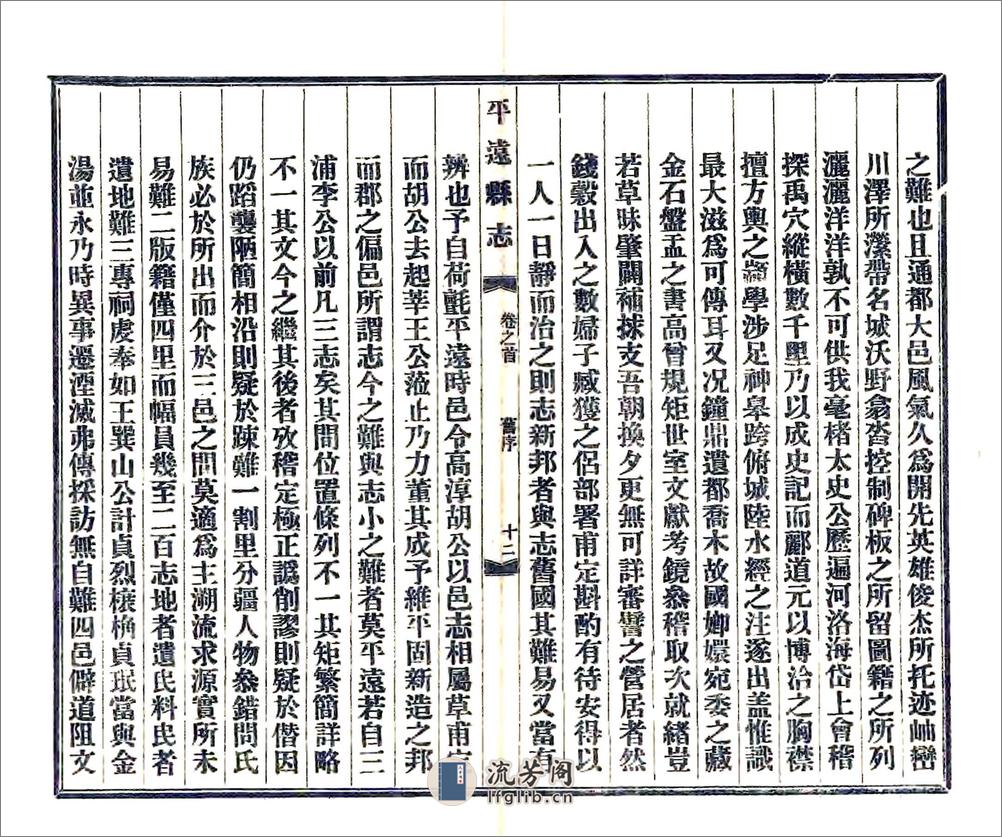 之難也且通都大邑風氣久爲開先英雄俊杰所托迹岫巒
川澤所瀠帶名城沃野翕沓控制碑板之所留圖籍之所列
灑灑洋洋孰不可供我毫楮太史公歷遍河洛海岱上會稽
探禹穴縱橫數千里乃以成史記而酈道元以博洽之胸襟
擅方輿之學涉足神皋跨俯城陸水經之注遂出盖惟識
最大滋爲可傳耳又况鐘鼎遺都喬木故國嫏嬛宛委之藏
金石盤盂之書高曾規矩世室文獻考鏡叅稽取次就緒豈
若草昧肇闢補採支吾朝換夕更無可詳審譬之管居者然
錢穀出入之數婦子臧獲之侶部署甫定斟酌有待安得以
一人一日靜而治之則志新邦者與志舊國其難易又當有
平遠縣志
卷之首
舊序
十二
辨也予自荷氈平遠時邑令高淳胡公以邑志相屬草甫
而胡公去起莘王公蒞止乃力董其成予維平固新造之邦
而郡之偏邑所謂志今之難與志小之難者莫平遠若自三
浦李公以前凡三志矣其間位置條列不一其矩繁簡詳略
不一其文今之繼其後者攷稽定極正譌削謬則疑於僭因
仍蹈襲陋簡相沿則疑於踈難一割里分疆人物叅錯問氏
族必於所出而介於三邑之間莫適爲主溯流求源實所未
易難二版籍僅四里而幅員幾至二百志地者遺民料民者
遺地難三專祠虔奉如王巽山公計貞烈榱桷貞珉當與金
湯並永乃時異事遷湮滅弗傳採訪無自難四邑僻道阻文
流芳阁
lfglib.cn